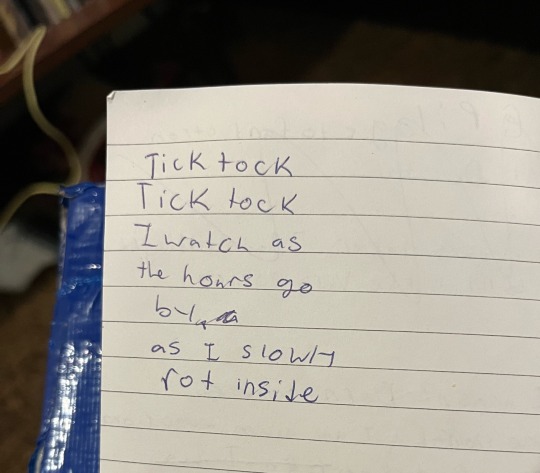 Tick tock
Tick tock
I watch as
the hours go
by
as I slowly
rot inside